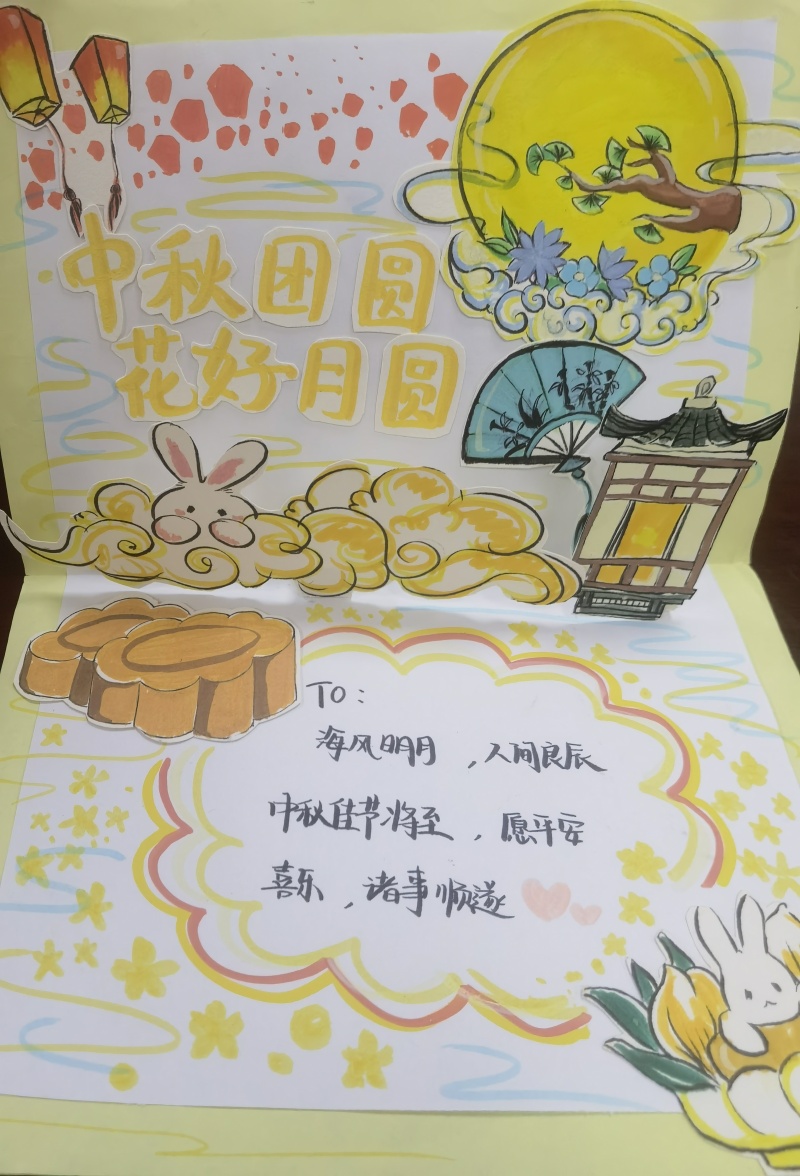 中秋团圆
花好月圆
TO：
海风明月，人间良辰
中秋佳节将至，愿平安
喜乐，诸事顺遂